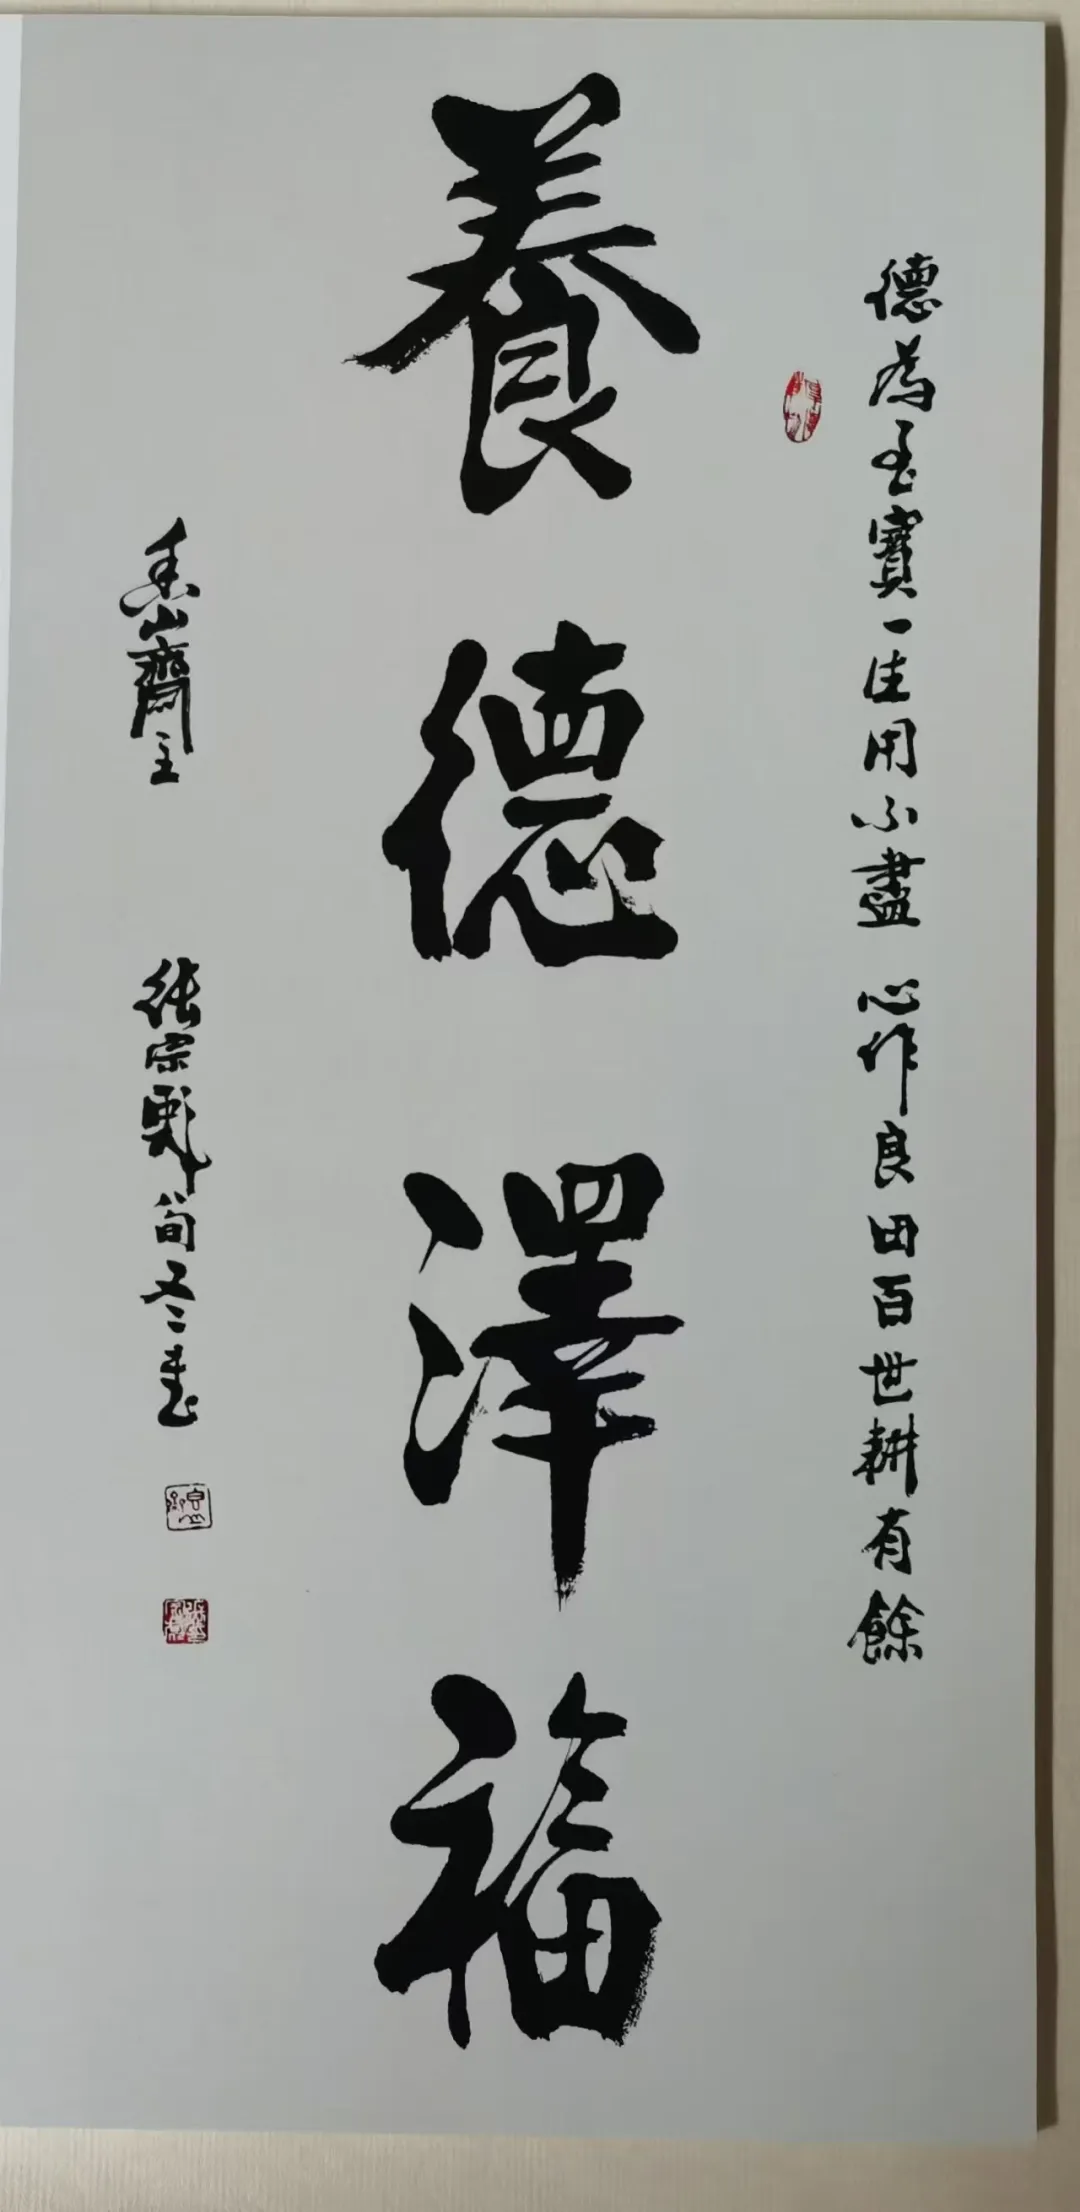 德為至寶一生用不盡 心作良田百世耕有餘
養德澤福
香山齋主 張宗 冬書